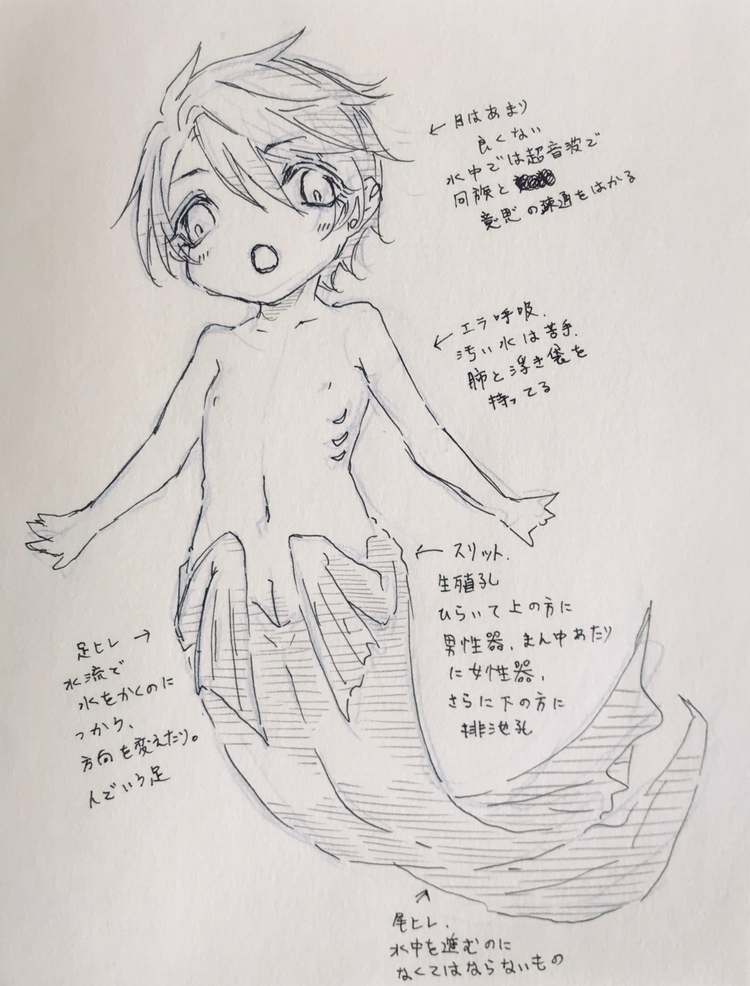 ← 目はあまり
良くない
水中では超音波で
同族と
意思の疎通をはかる
← エラ呼吸.
汚い水は苦手.
肺と浮き袋を
持ってる
← スリット.
生殖孔
ひらいて上の方に
男性器、まん中あたり
に女性器、
さらに下の方に
排泄孔
足ヒレ →
水流で
水をかくのに
つかう、
方向を変えたり。
んでいう足
尾ヒレ.
水中を進むのに
なくてはならないもの